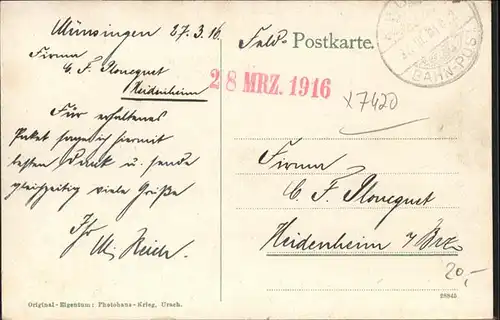 Münsingen 27.3.16
Firma
C. F. Ploucquet
Heidenheim
Für erhaltenes
Paket sage ich hiermit
besten Dank u. sende
gleichzeitig viele Grüße
Ihr
Reich.
Original-Eigentum: Photohaus-Krieg, Urach.
Feld- Postkarte.
28 MRZ. 1916
BAHN-POST
x7420
Firma
C. F. Ploucquet
Heidenheim a/Brz
20,-
28845